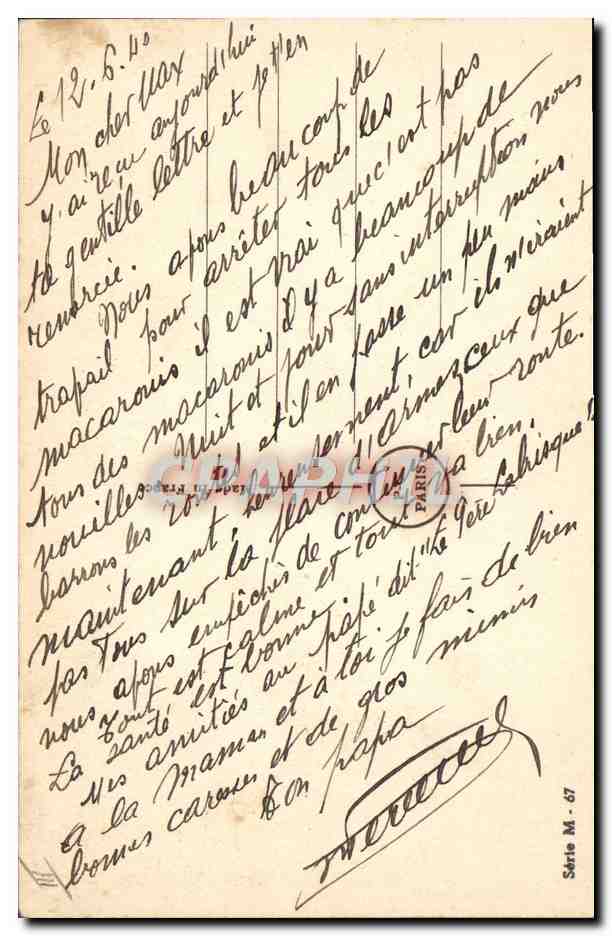 Le 12.6.40
Mon cher Max
J'ai reçu aujourd'hui
ta gentille lettre et je t'en
remercie.
Nous avons beaucoup de
travail pour arrêter tous les
macaronis il est vrai que c'est pas
tous des macaronis il y a beaucoup de
nouilles. Nuit et jour sans interruption nous
barrons les routes et il en passe un peu moins
maintenant, heureusement, car ils n'iraient
pas tous sur la place d'Armes ceux que
nous avons empêchés de continuer leur route.
Tout est calme et tout va bien,
La santé est bonne.
Mes amitiés au papé dit "Le Père Labrisque"
a la Maman et à toi je fais de bien
bonnes caresses et de gros mimis
Ton papa
Made in France
PARIS
CRAPHIL
Série M - 67